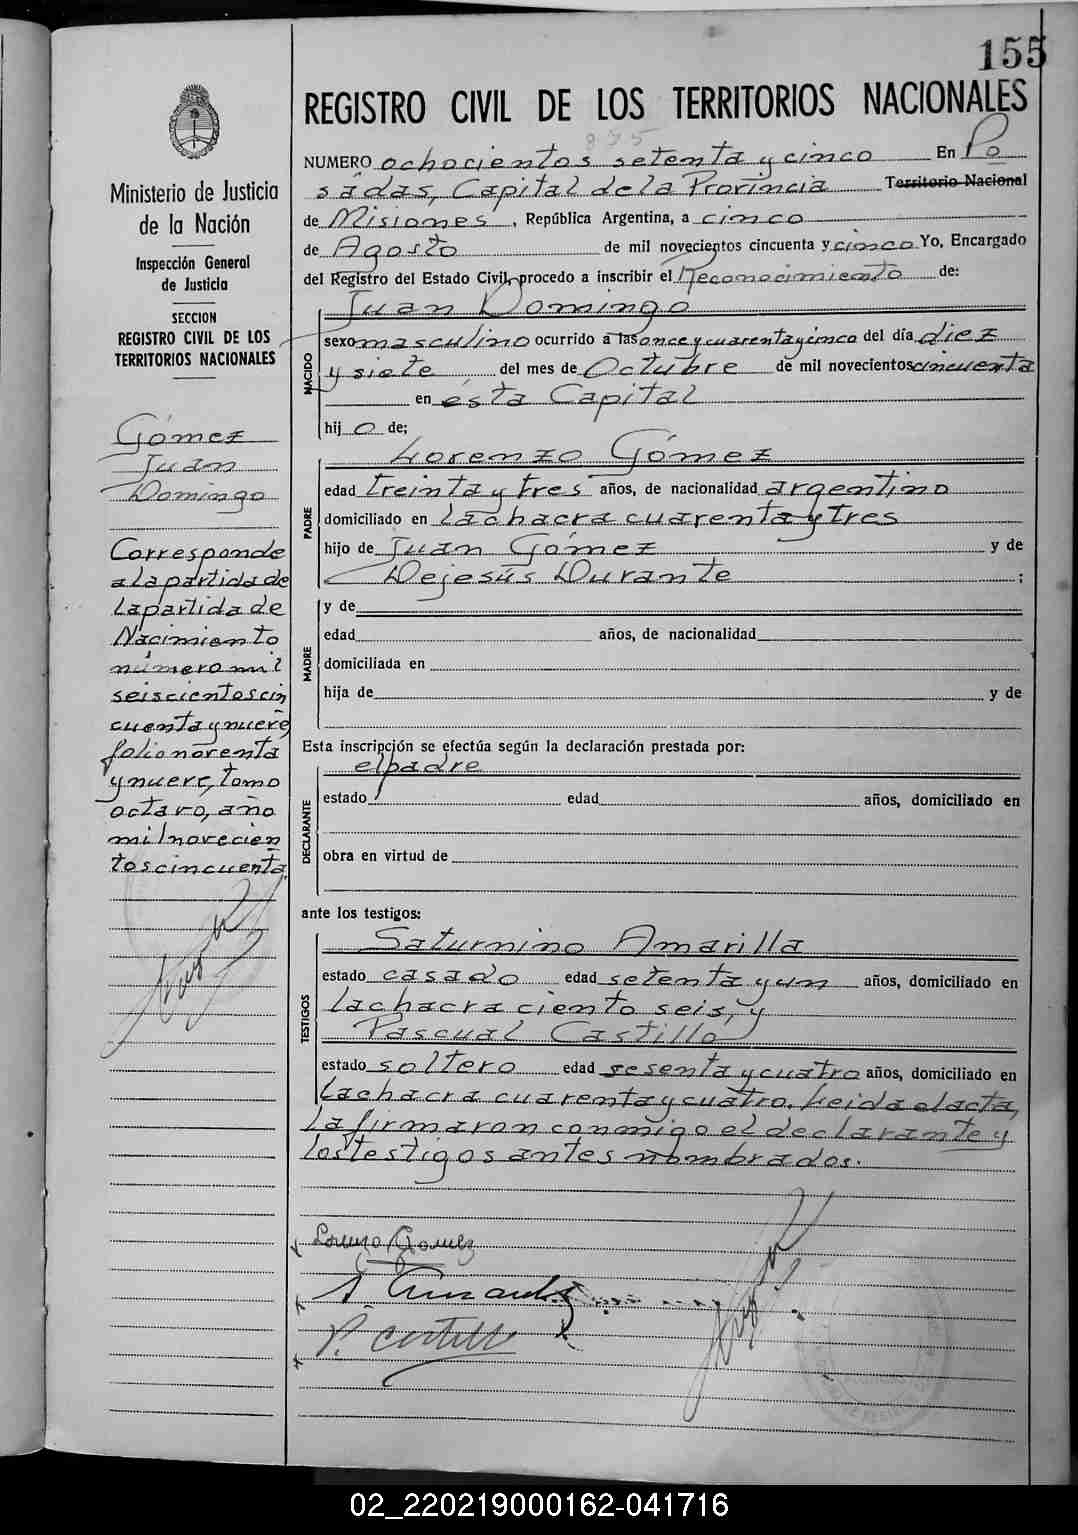 155
REGISTRO CIVIL DE LOS TERRITORIOS NACIONALES
875
NUMERO ochocientos setenta y cinco En Po
sadas, Capital de la Provincia Territorio Nacional
de Misiones, República Argentina, a cinco
de Agosto de mil novecientos cincuenta y cinco Yo, Encargado
del Registro del Estado Civil, procedo a inscribir el Reconocimiento de:
Juan Domingo
NACIDO
sexo masculino ocurrido a las once y cuarenta y cinco del día diez
y siete del mes de Octubre de mil novecientos cincuenta
en ésta Capital
hij o de;
Lorenzo Gómez
PADRE
edad treinta y tres años, de nacionalidad argentino
domiciliado en la chacra cuarenta y tres
hijo de Juan Gómez y de
Dejesús Durante ;
MADRE
y de
edad años, de nacionalidad
domiciliada en
hija de y de
Esta inscripción se efectúa según la declaración prestada por:
el padre
DECLARANTE
estado edad años, domiciliado en
obra en virtud de
ante los testigos:
TESTIGOS
Saturnino Amarilla
estado casado edad setenta y un años, domiciliado en
la chacra ciento seis, y
Pascual Castillo
estado soltero edad sesenta y cuatro años, domiciliado en
la chacra cuarenta y cuatro. Leida el acta,
la firmaron conmigo el declarante y
los testigos antes nombrados.
Lorenzo Gomez
P. Castillo
Ministerio de Justicia
de la Nación
Inspección General
de Justicia
SECCION
REGISTRO CIVIL DE LOS
TERRITORIOS NACIONALES
Gómez
Juan
Domingo
Corresponde
a la partida de
la partida de
Nacimiento
número mil
seiscientos cin
cuenta y nueve
folio noventa
y nueve, tomo
octavo, año
mil novecien
tos cincuenta.
02_220219000162-041716